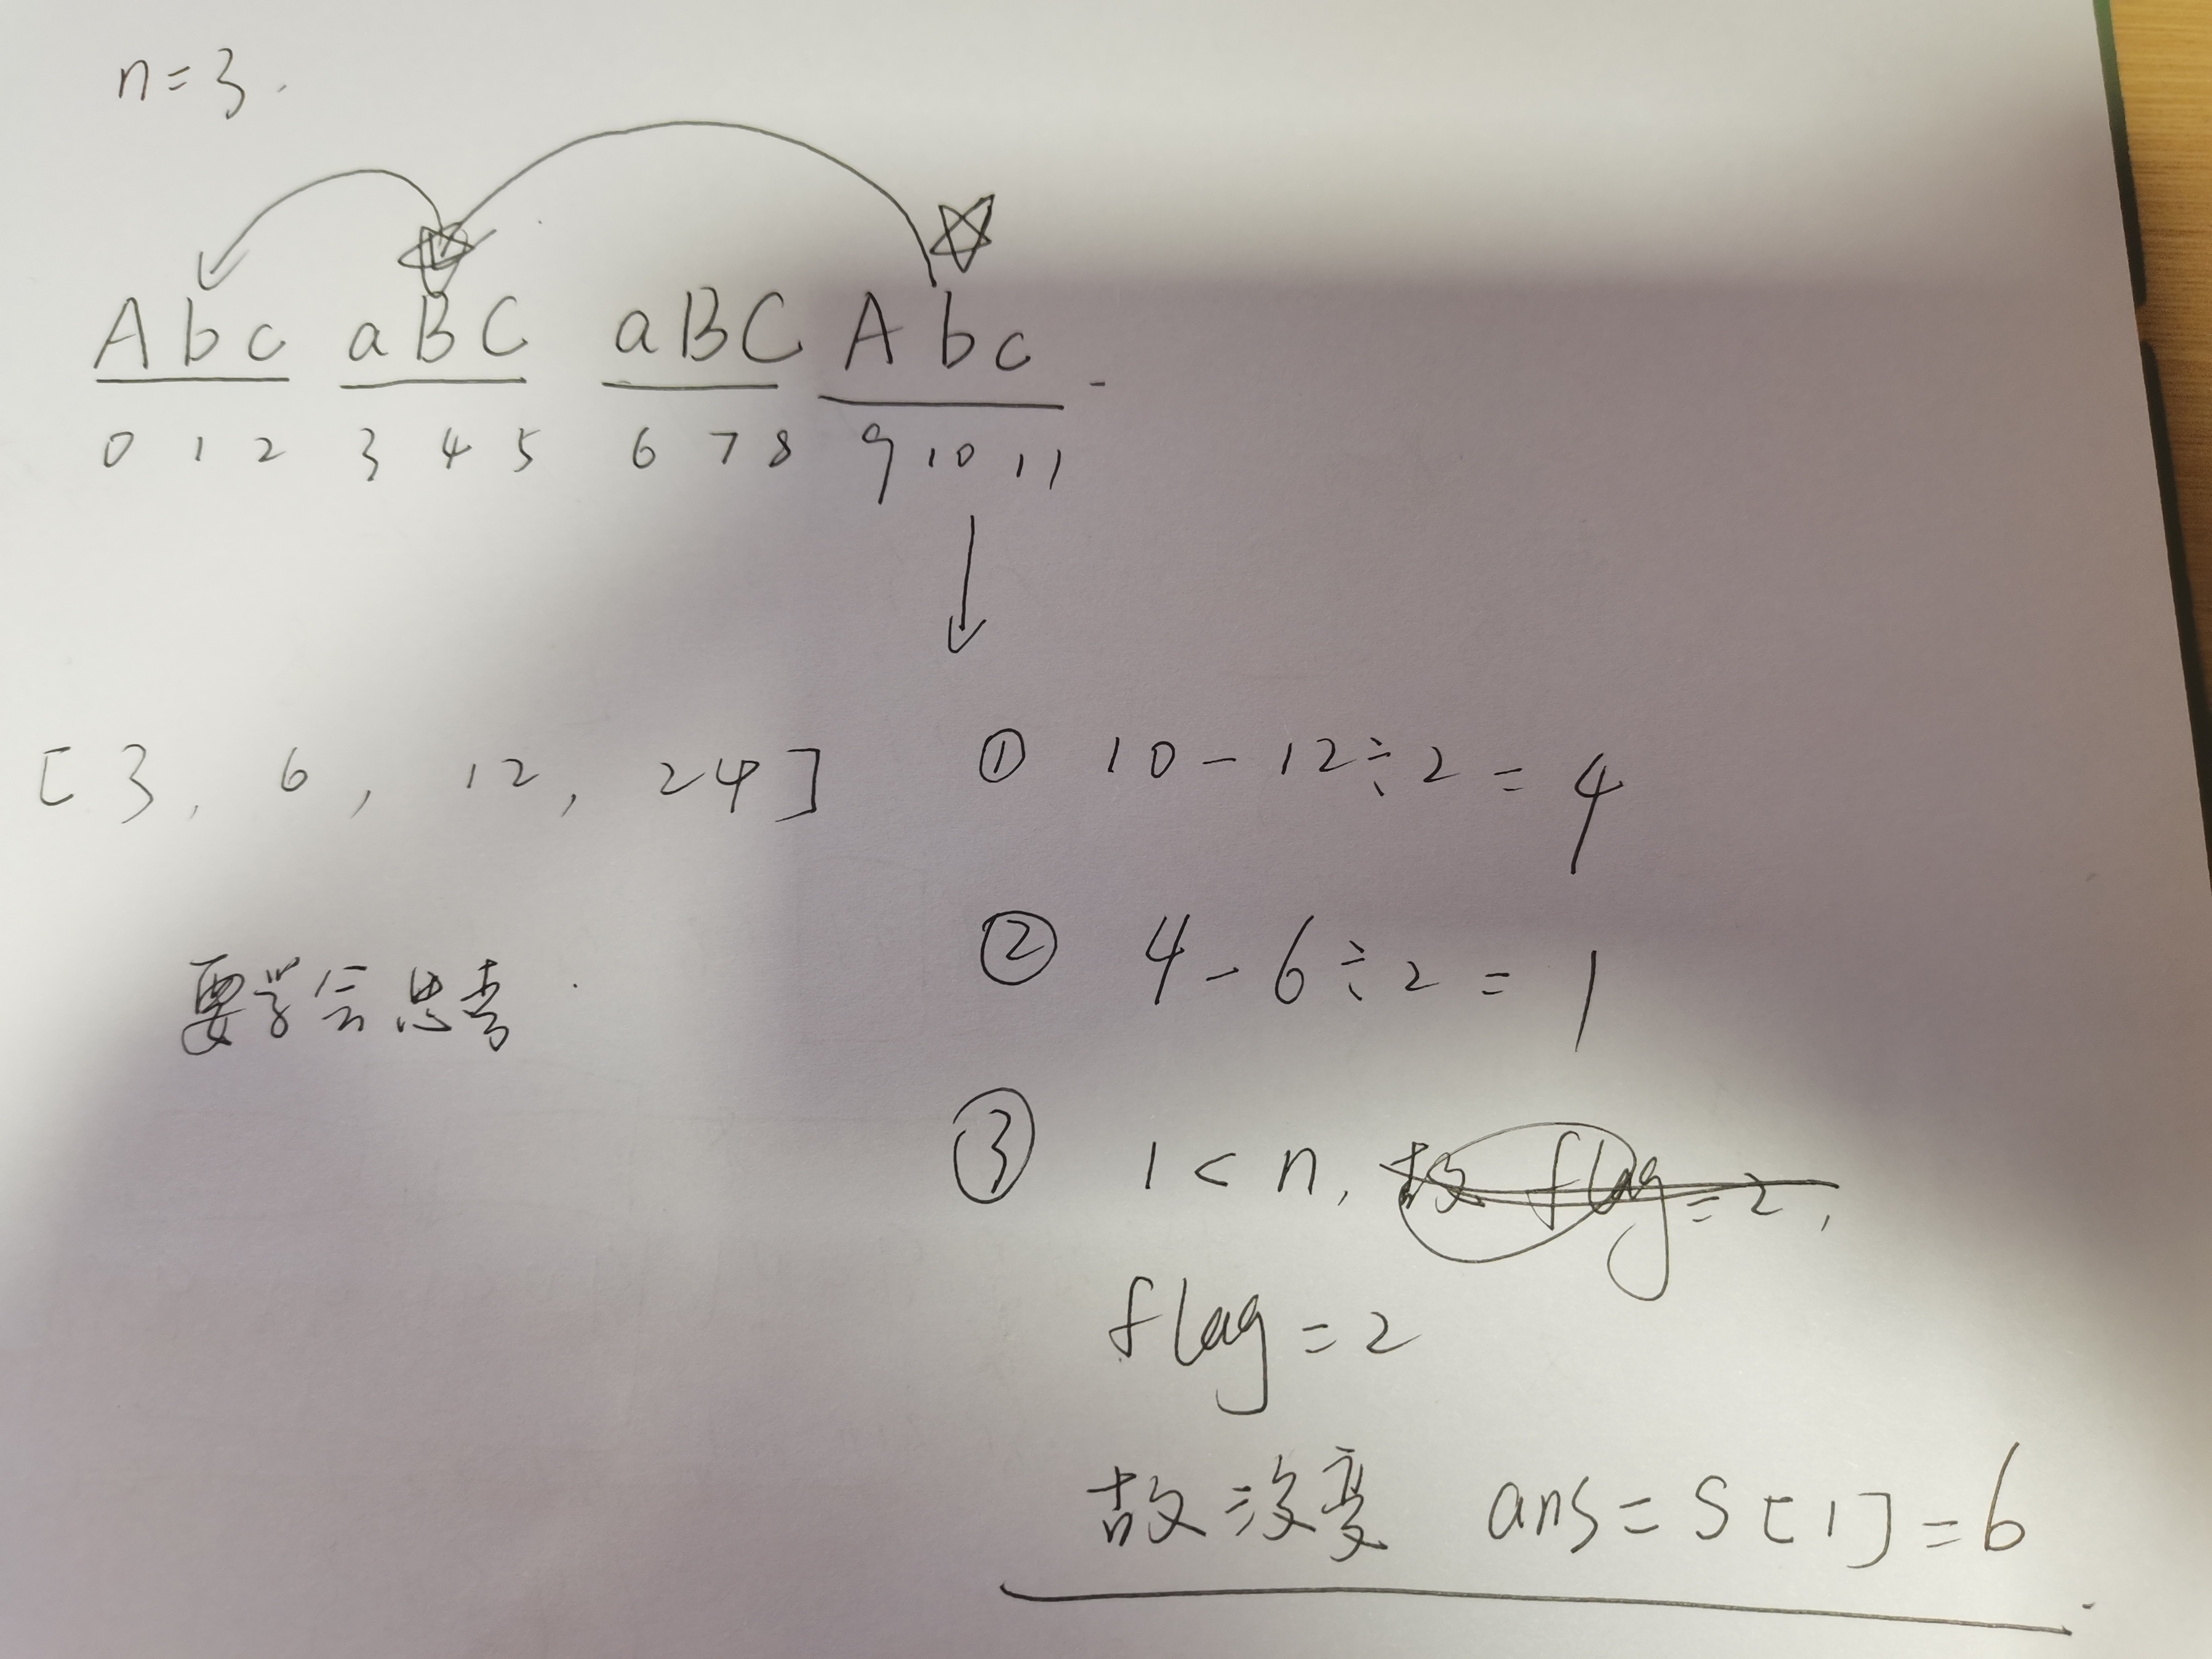 n=3.
Abc aBC aBC Abc
0 1 2 3 4 5 6 7 8 9 10 11
[3, 6, 12, 24]
① 10-12÷2=4
② 4-6÷2=1
要学会思考
③ 1<n, 故 flag=2,
flag=2
故没变 ans=S[1]=b